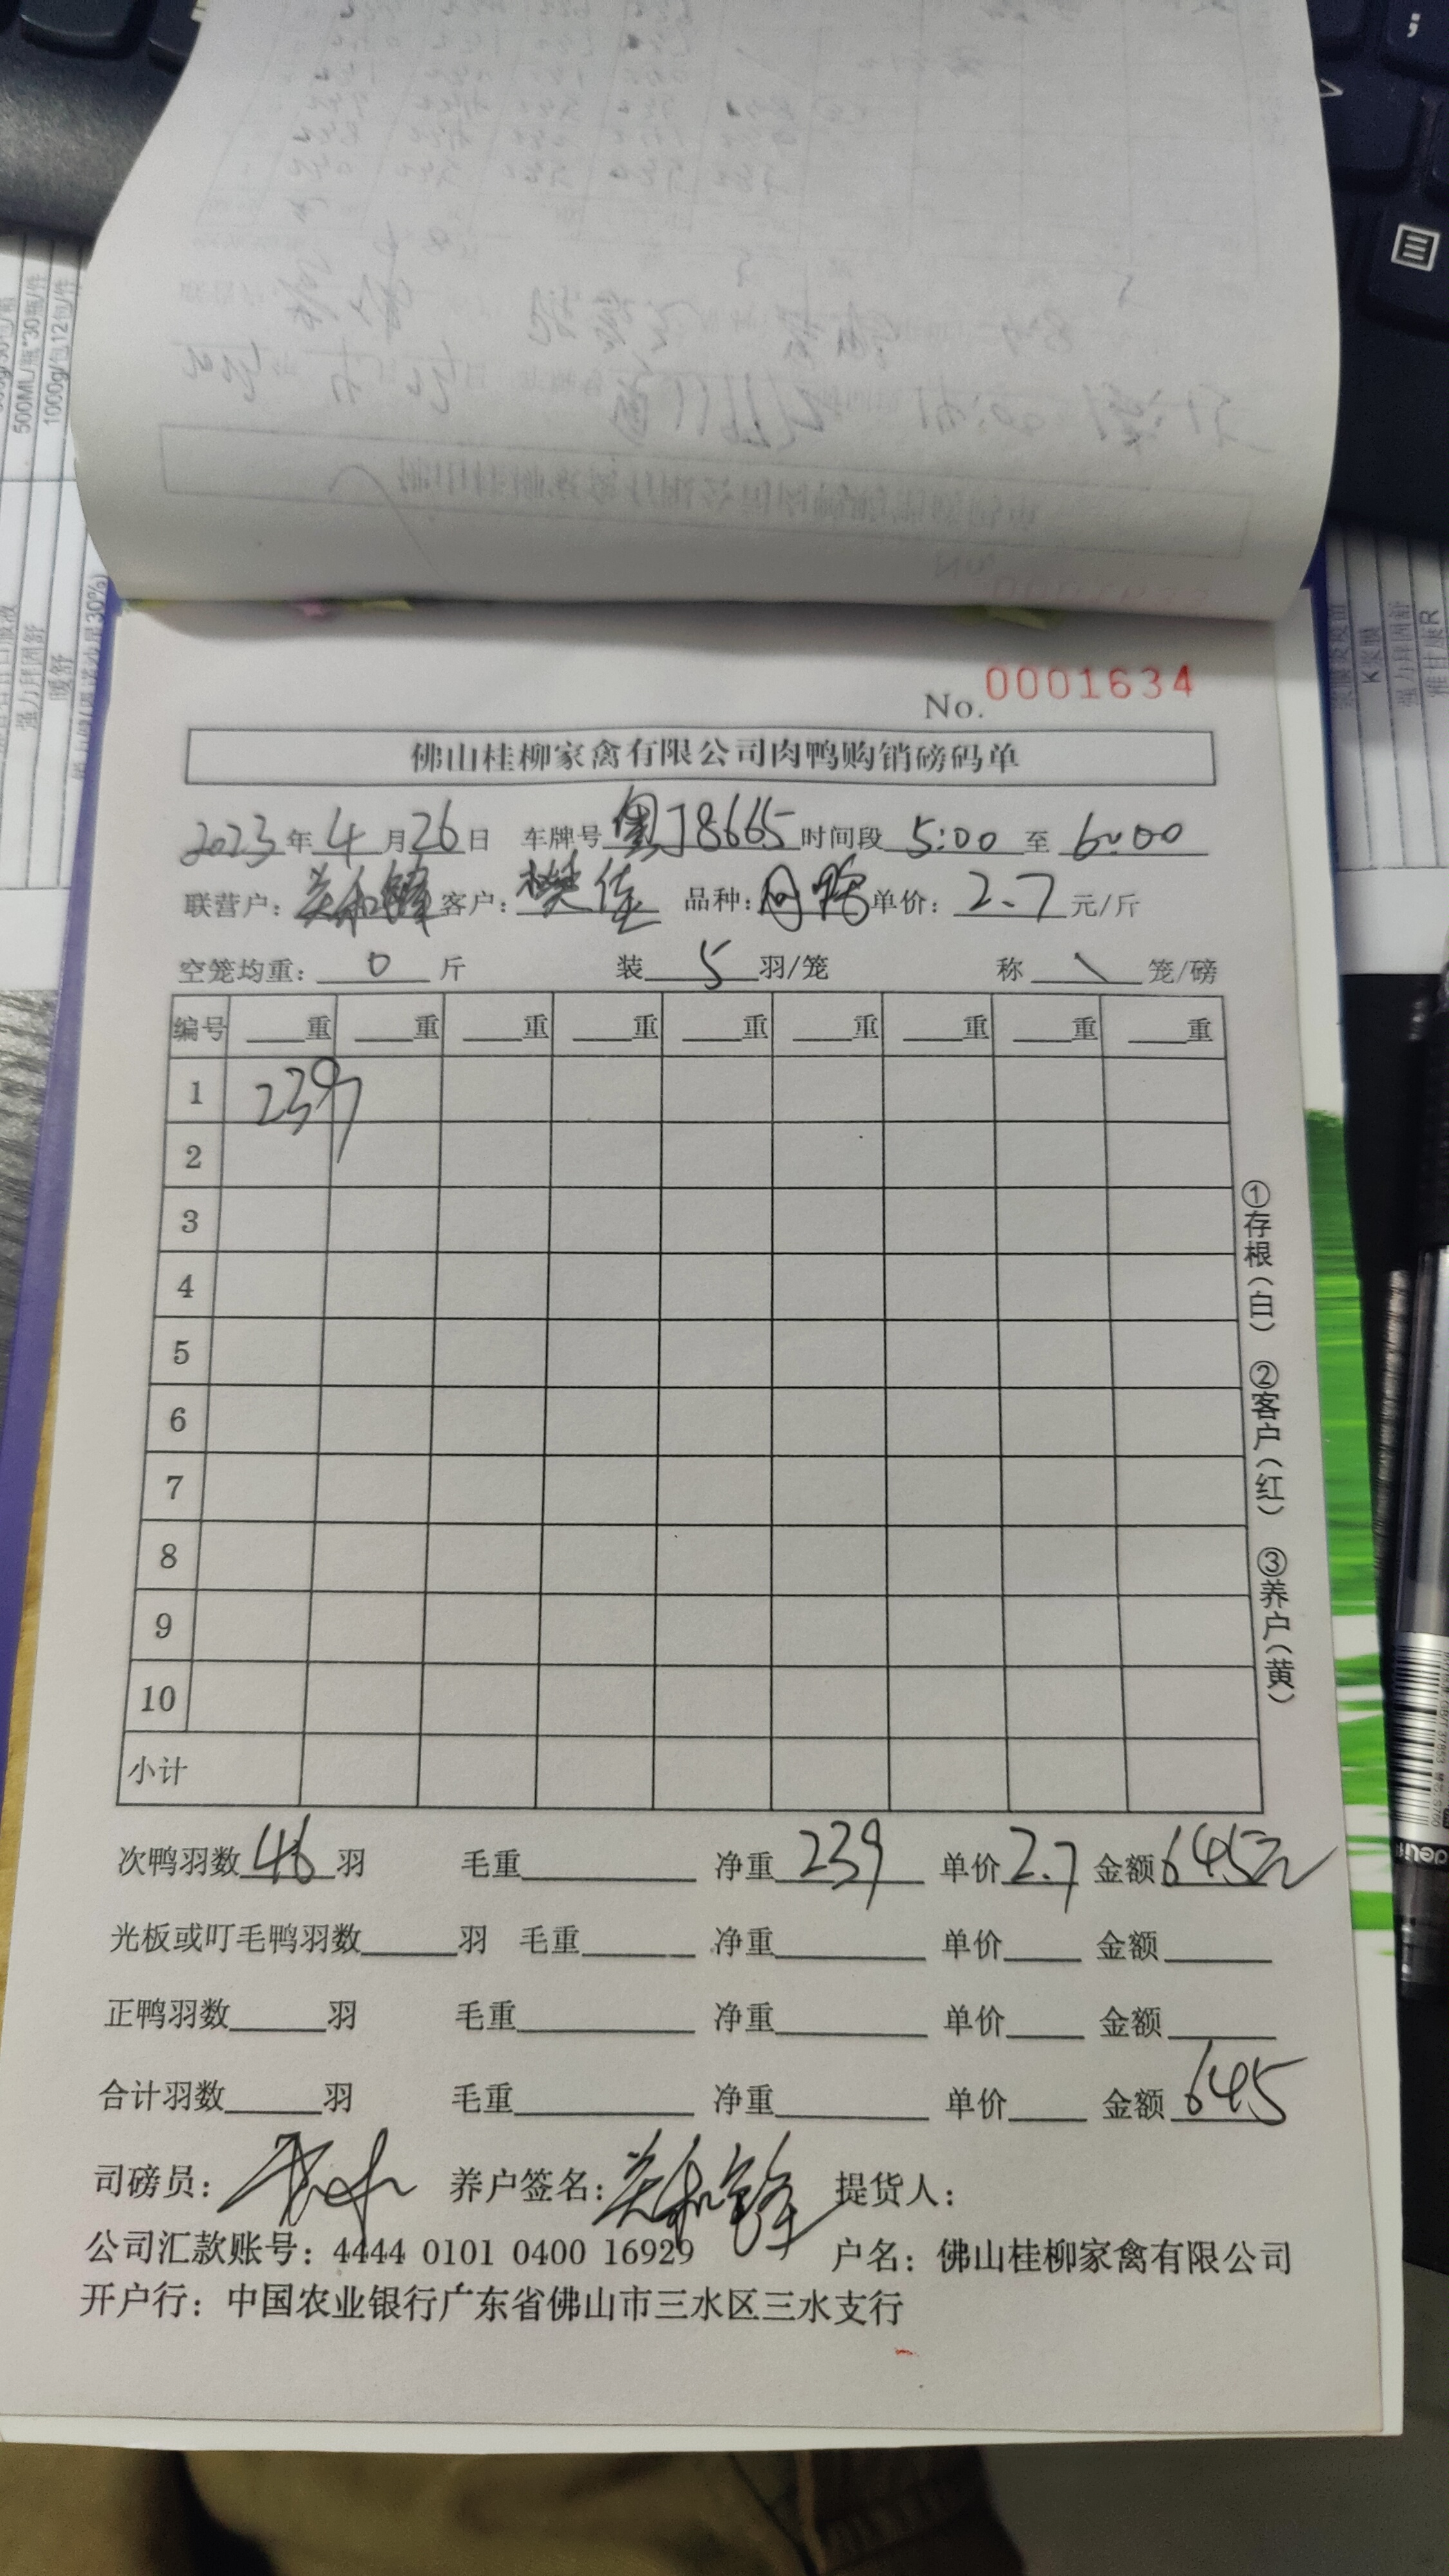 No. 0001634
佛山桂柳家禽有限公司肉鸭购销磅码单
2023年4月26日 车牌号 粤J8665 时间段 5:00 至 6:00
联营户: 关和锋 客户: 樊佳 品种: 肉鸭 单价: 2.7 元/斤
空笼均重: 0 斤 装 5 羽/笼 称 笼/磅
编号 重 重 重 重 重 重 重 重 重
1 239
2
3
4
5
6
7
8
9
10
小计
次鸭羽数 46 羽 毛重 净重 239 单价 2.7 金额 645元
光板或叮毛鸭羽数 羽 毛重 净重 单价 金额
正鸭羽数 羽 毛重 净重 单价 金额
合计羽数 羽 毛重 净重 单价 金额 645
司磅员: 养户签名: 关和锋 提货人:
公司汇款账号: 4444 0101 0400 16929 户名: 佛山桂柳家禽有限公司
开户行: 中国农业银行广东省佛山市三水区三水支行
①存根(白) ②客户(红) ③养户(黄)
500ML/瓶*30瓶/件
1000g/包12包/件
deli